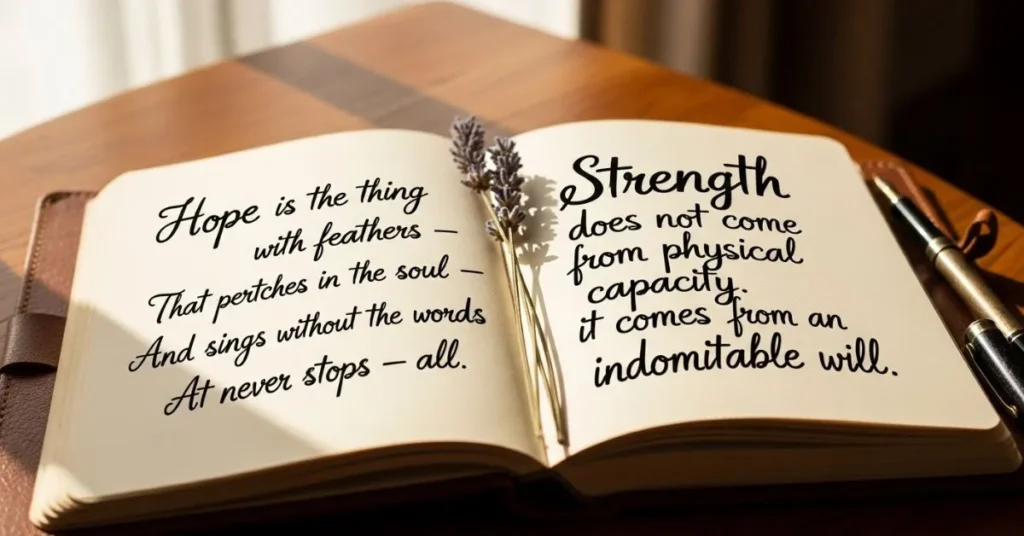 Hope is the thing
with feathers —
That pertches in the soul —
And sings without the words
At never stops — all.
Strength
does not come
from physical
capacity.
it comes from an
indomitable will.